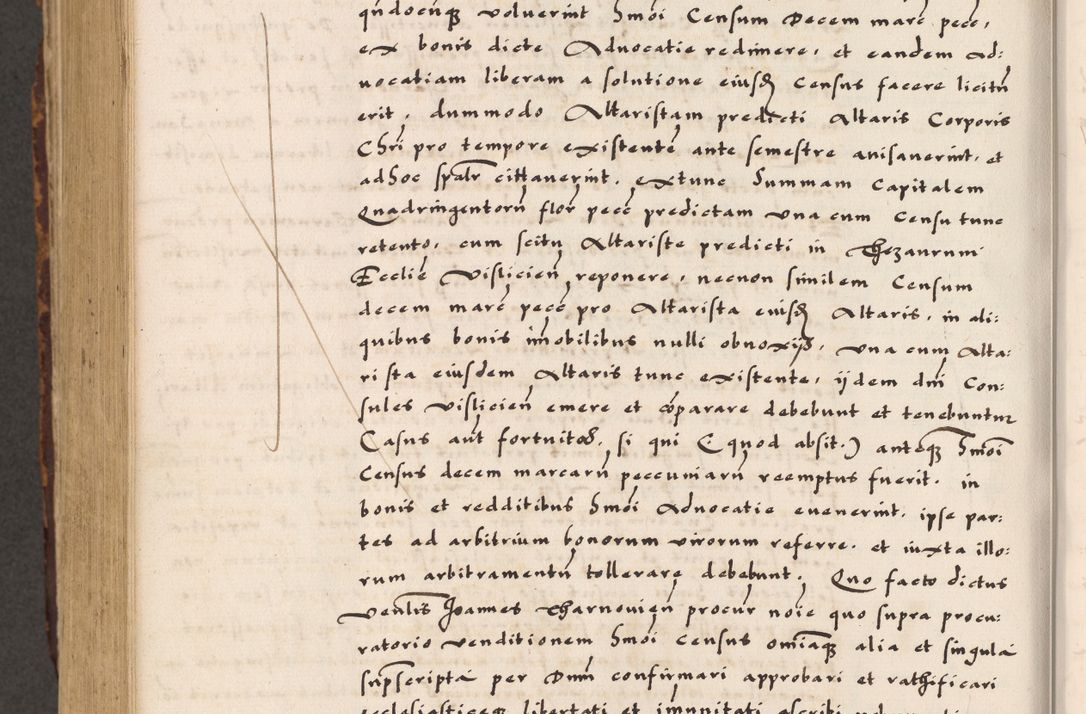 qñdocuñqȝ voluerint hmõi Censum Decem marc̃ pecc̃,
ex bonis dicte Aduocatie redimere, et eandem Ad:
uocatiam liberam a solutione eiusd̃ Census facere licitũ
erit, dummodo Altaristam predicti Altaris Corporis
Chri pro tempore existentẽ ante semestre auisauerint, et
adhoc spãlr cittauerint, extunc Summam Capitalem
Quadringentorũ flor̃ pecc̃ predictam vna cum Censu tunc
retento, cum scitu Altariste predicti in Thezaurum
Ecclie̅ Vislicień reponere, necnon similem Censum
decem marc̃ pecc̃ pro Altarista eiusd̃ Altaris, in ali:
quibus bonis im̃obilibus nulli obnoxijs, vna cum Alta:
rista eiusdem Altaris tunc existente, ijdem dnĩ Con:
sules Vislicień emere et cõparare debebunt et tenebuntur
Casus aut̃ fortuitos, si qui (quod absit) anteqȝ hmõi
Census decem marcarũ peccuniarũ reemptus fuerit, in
bonis et redditibus hmõi Aduocatie euenerint, ipse par:
tes ad arbitrium bonorum virorum referre, et iuxta illo:
rum arbitramentũ tollerare debebunt, Quo facto dictus
Venlis̃ Joannes Tharnovień procur̃ noĩe quo supra procu:
ratorio venditionem hmõi Census omĩaqȝ alia et singula
sup̃scripta per Dnm̃ confirmari approbari et rathificari
ecclesiasticeqȝ libertati et imunitati ascribi